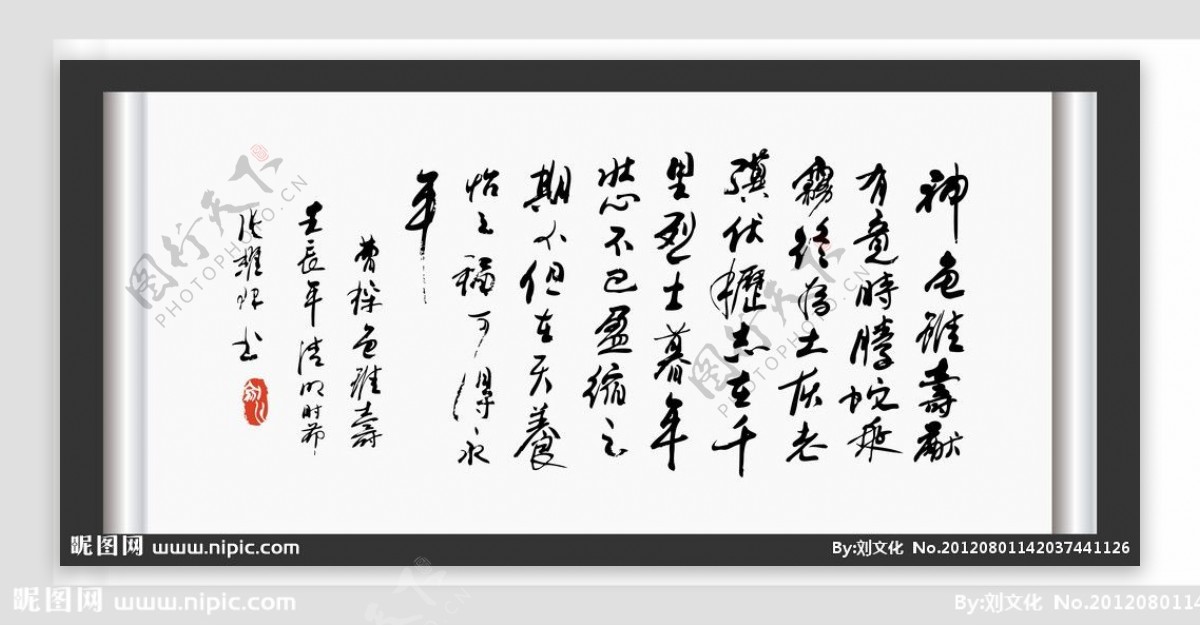 神龟雖壽猷
有竟時騰蛇乘
霧終為土灰老
驥伏櫪志在千
里烈士暮年
壯心不已盈縮之
期不但在天養
怡之福可得永
年
曹操龟雖壽
壬辰年清明时节
张雅书
图行天下
PHOTOPHOTO.CN
图行天下
PHOTOPHOTO.CN
昵图网 www.nipic.com
By:刘文化 No.20120801142037441126
昵图网 www.nipic.com
By:刘文化 No.2012080114